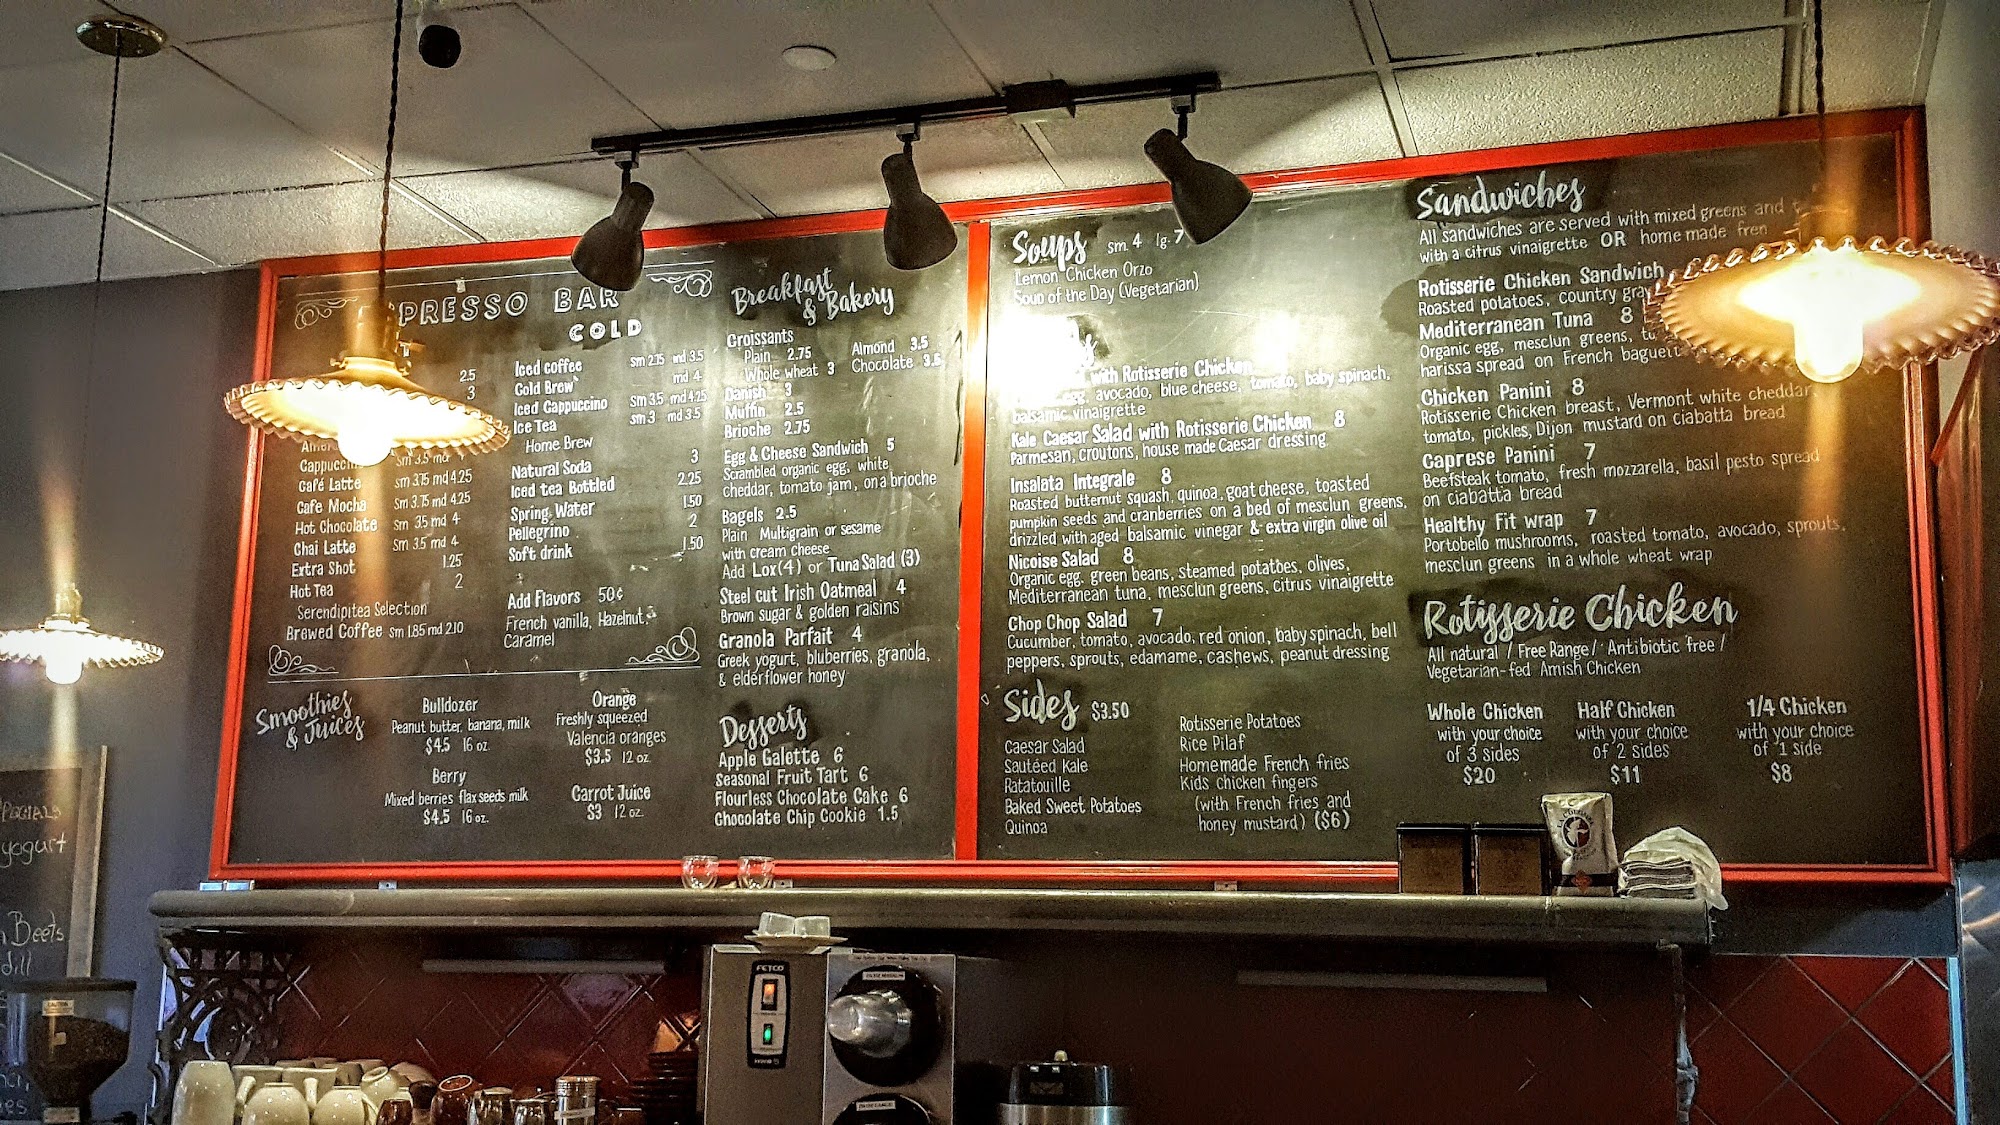 PRESSO BAR
COLD
2.5
3
Cappuccin sm 3.5 md
Café Latte sm 3.75 md 4.25
Cafe Mocha sm 3.75 md 4.25
Hot Chocolate sm 3.5 md 4
Chai Latte sm 3.5 md 4
Extra Shot 1.25
Hot Tea 2
Serendipitea Selection
Brewed Coffee sm 1.85 md 2.10
Iced coffee sm 2.75 md 3.5
Cold Brew md 4
Iced Cappuccino sm 3.5 md 4.25
Ice Tea sm 3 md 3.5
Home Brew
Natural Soda 3
Iced tea Bottled 2.25
Spring Water 1.50
Pellegrino 2
Soft drink 1.50
Add Flavors 50¢
French vanilla, Hazelnut,
Caramel
Smoothies
& Juices
Bulldozer
Peanut butter, banana, milk
$4.5 16 oz.
Berry
Mixed berries flax seeds milk
$4.5 16 oz.
Orange
Freshly squeezed
Valencia oranges
$3.5 12 oz.
Carrot Juice
$3 12 oz.
Breakfast
& Bakery
Croissants
Plain 2.75 Almond 3.5
Whole wheat 3 Chocolate 3.5
Danish 3
Muffin 2.5
Brioche 2.75
Egg & Cheese Sandwich 5
Scrambled organic egg, white
cheddar, tomato jam, on a brioche
Bagels 2.5
Plain Multigrain or sesame
with cream cheese
Add Lox (4) or Tuna Salad (3)
Steel cut Irish Oatmeal 4
Brown sugar & golden raisins
Granola Parfait 4
Greek yogurt, bluberries, granola,
& elderflower honey
Desserts
Apple Galette 6
Seasonal Fruit Tart 6
Flourless Chocolate Cake 6
Chocolate Chip Cookie 1.5
Soups sm. 4 lg. 7
Lemon Chicken Orzo
Soup of the Day (Vegetarian)
with Rotisserie Chicken
egg, avocado, blue cheese, tomato, baby spinach,
balsamic vinaigrette
Kale Caesar Salad with Rotisserie Chicken 8
Parmesan, croutons, house made Caesar dressing
Insalata Integrale 8
Roasted butternut squash, quinoa, goat cheese, toasted
pumpkin seeds and cranberries on a bed of mesclun greens,
drizzled with aged balsamic vinegar & extra virgin olive oil
Nicoise Salad 8
Organic egg, green beans, steamed potatoes, olives,
Mediterranean tuna, mesclun greens, citrus vinaigrette
Chop Chop Salad 7
Cucumber, tomato, avocado, red onion, baby spinach, bell
peppers, sprouts, edamame, cashews, peanut dressing
Sides $3.50
Caesar Salad
Sautéed Kale
Ratatouille
Baked Sweet Potatoes
Quinoa
Rotisserie Potatoes
Rice Pilaf
Homemade French fries
Kids chicken fingers
(with French fries and
honey mustard) ($6)
Sandwiches
All sandwiches are served with mixed greens and
with a citrus vinaigrette OR home made fren
Rotisserie Chicken Sandwich
Roasted potatoes, country gra
Mediterranean Tuna 8
Organic egg, mesclun greens,
harissa spread on French baguett
Chicken Panini 8
Rotisserie Chicken breast, Vermont white cheddar,
tomato, pickles, Dijon mustard on ciabatta bread
Caprese Panini 7
Beefsteak tomato, fresh mozzarella, basil pesto spread
on ciabatta bread
Healthy Fit wrap 7
Portobello mushrooms, roasted tomato, avocado, sprouts,
mesclun greens in a whole wheat wrap
Rotisserie Chicken
All natural / Free Range / Antibiotic free /
Vegetarian-fed Amish Chicken
Whole Chicken
with your choice
of 3 sides
$20
Half Chicken
with your choice
of 2 sides
$11
1/4 Chicken
with your choice
of 1 side
$8
yogurt
Beets
dill
FETCO